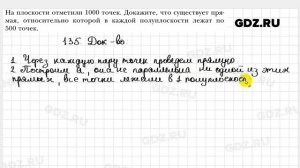 На плоскости отметили 1000 точек. Докажите, что существует пря-
мая, относительно которой в каждой полуплоскости лежат по
500 точек.
GDZ.RU
135 Док-во
1 Через каждую пару точек проведем прямую
2 Построим a, она не параллельна ни одной из этих
прямых, все точки лежат в 1 полуплоскост
GDZ.RU